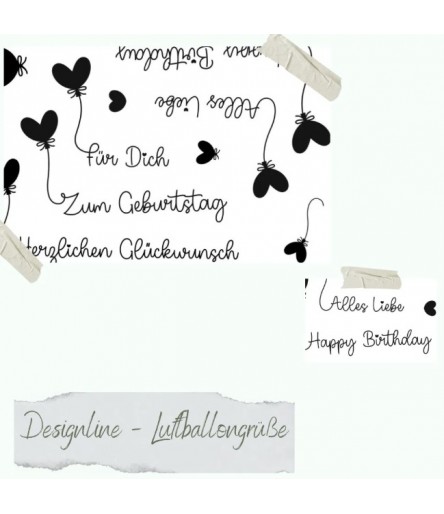 Birthday
Alles Liebe
Für Dich
Zum Geburtstag
Herzlichen Glückwunsch
Alles Liebe
Happy Birthday
Designline - Luftballongrüße